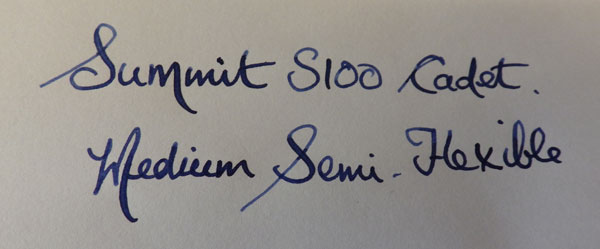 Summit S100 Cadet.
Medium Semi-Flexible